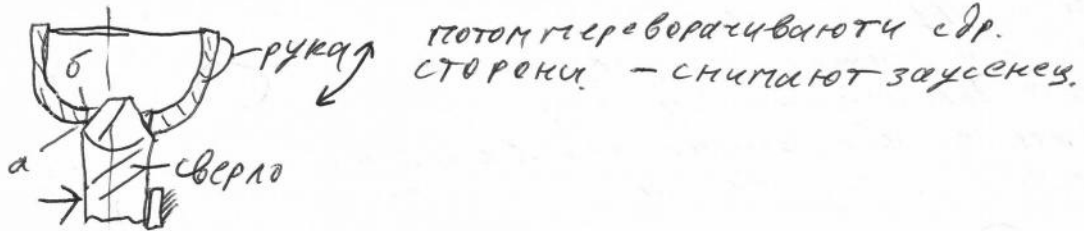 потом переворачивают и с др.
стороны – снимают заусенец.
рука
б
а
сверло